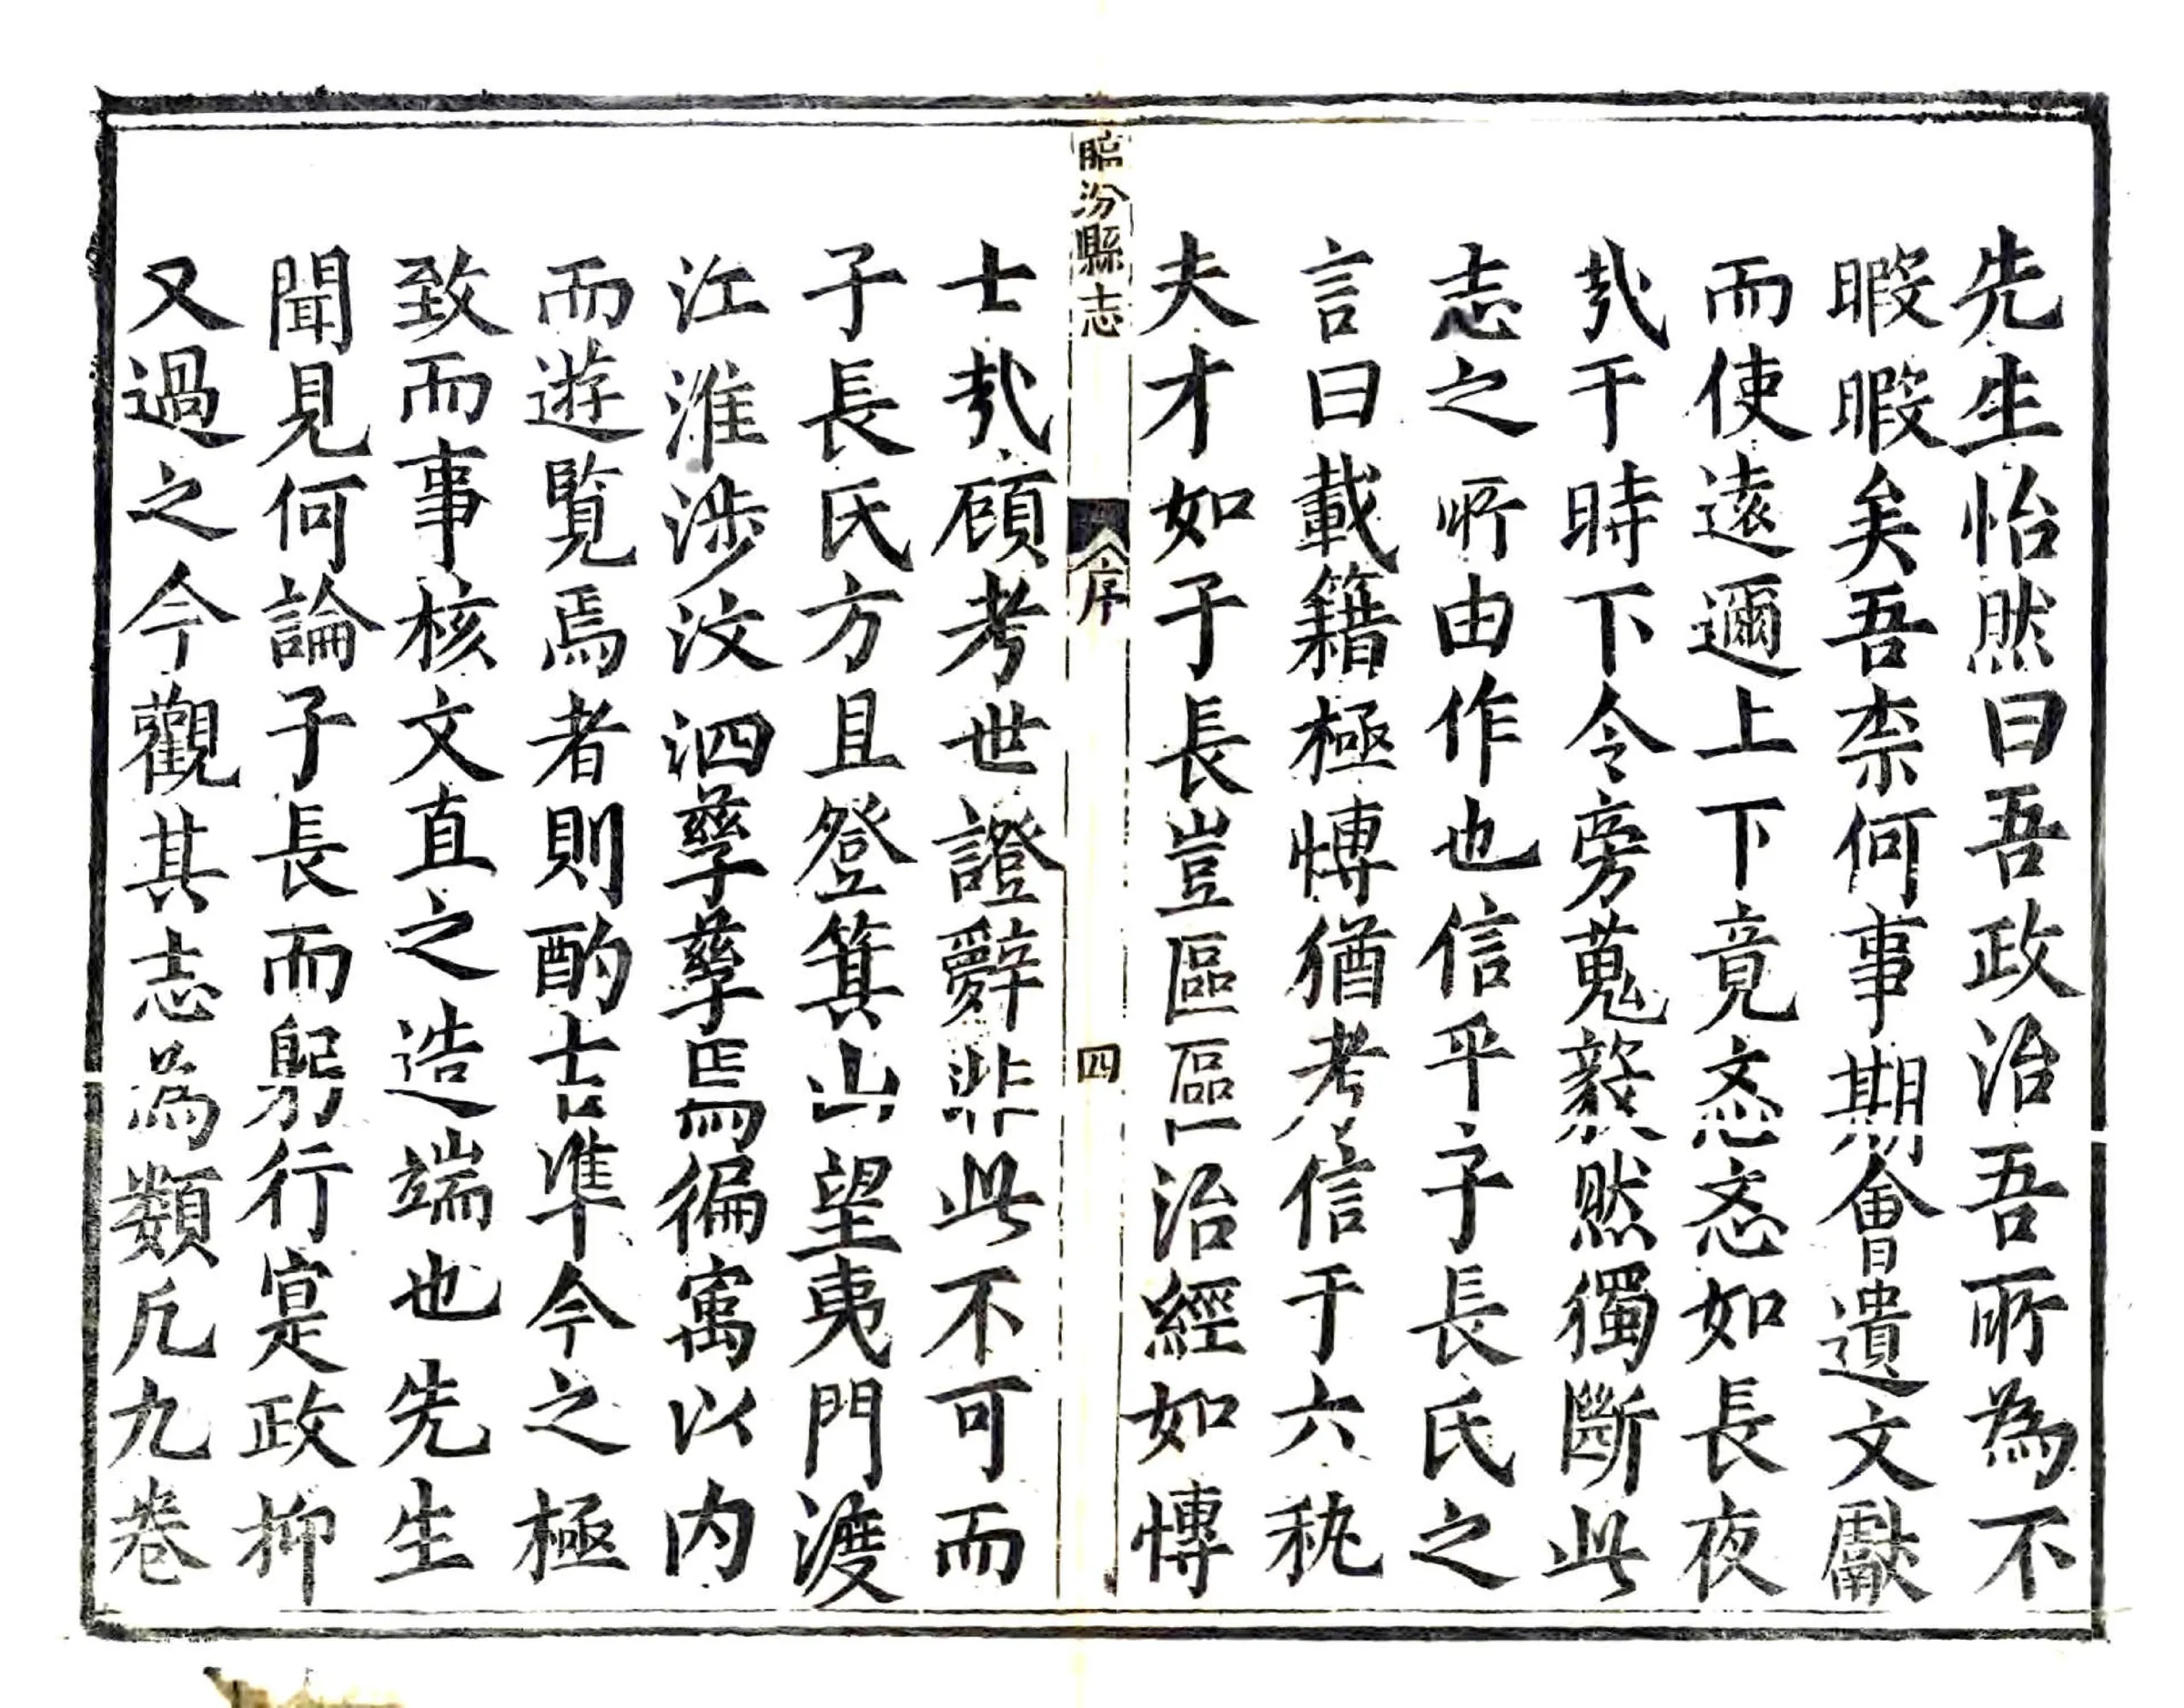 先生怡然曰吾政治吾所為不
暇暇矣吾柰何事期會遺文獻
而使遠邇上下竟忞忞如長夜
哉于時下令旁蒐毅然獨斷此
志之所由作也信乎子長氏之
言曰載籍極愽猶考信于六秇
夫才如子長豈區區治經如愽
臨汾縣志
序
四
士哉顧考世證辭非此不可而
子長氏方且登箕山望夷門渡
江淮涉汶泗孳孳焉徧寓以內
而遊覧焉者則酌古準今之極
致而事核文直之造端也先生
聞見何論子長而躬行寔政抑
又過之今觀其志為類凡九卷